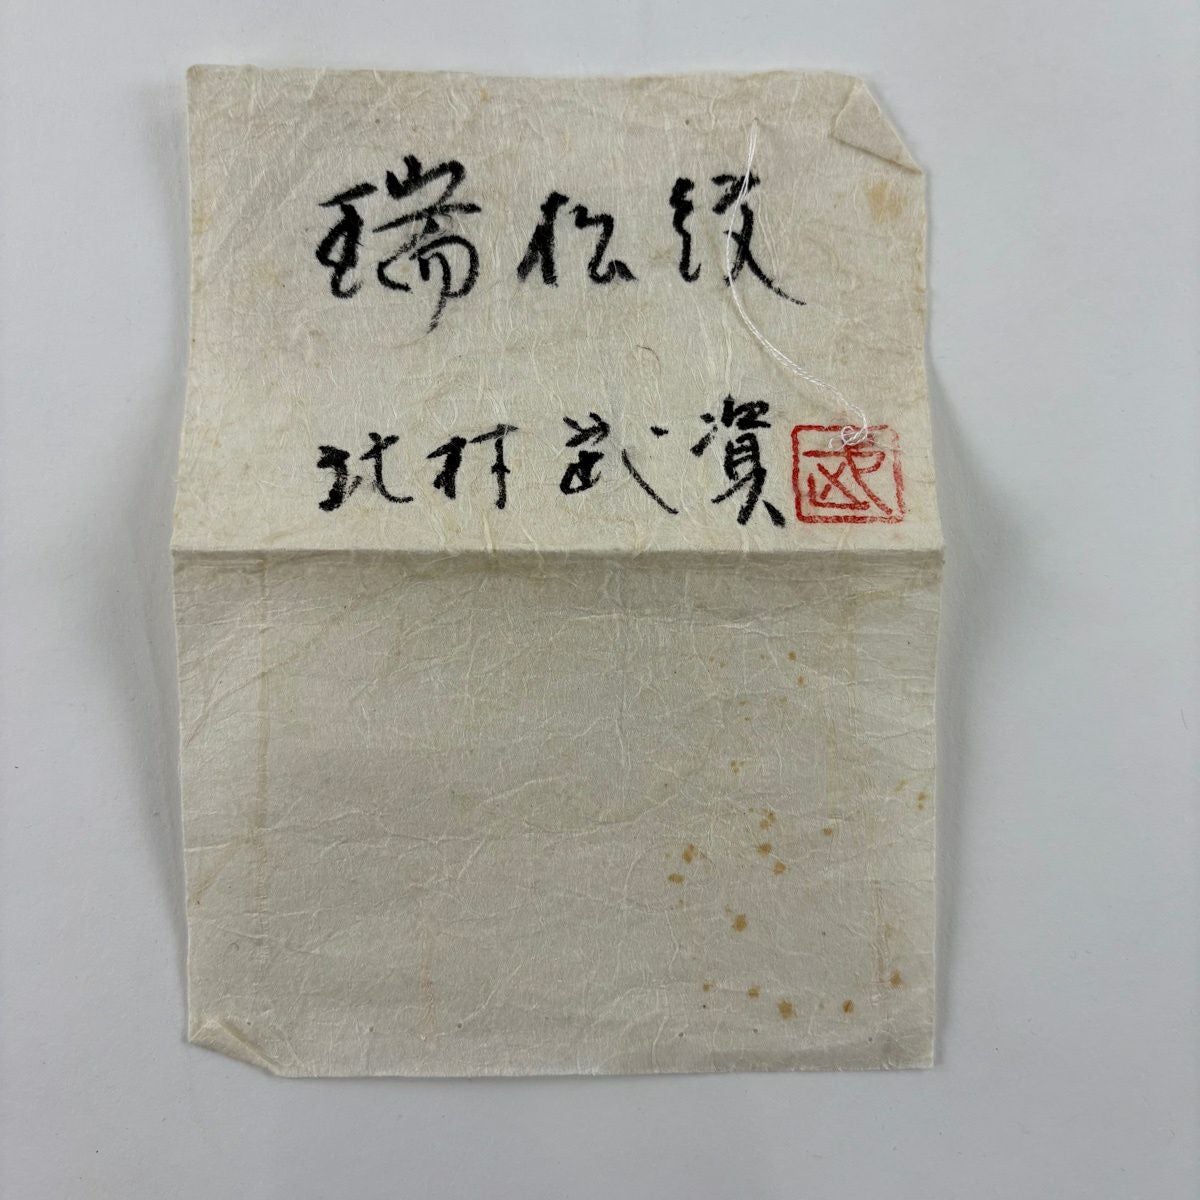 瑞松紋
北村武資
武